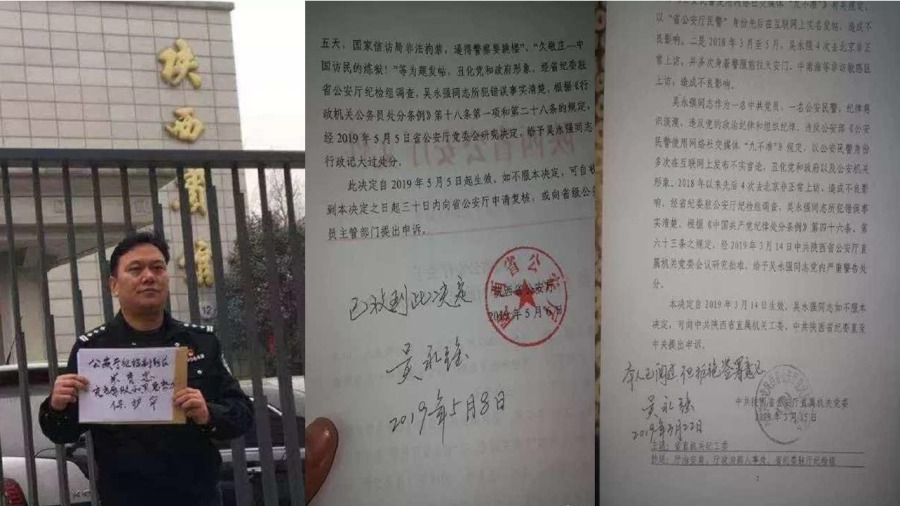 陕西宾馆
公安厅纪检副组长
保护伞
五天，国家信访局非法拘禁，逼得警察要跳楼”、“久敬庄—
中国访民的炼狱！”等为题发帖，丑化党和政府形象。经省纪委驻
省公安厅纪检组调查，吴永强同志所犯错误事实清楚，根据《行
政机关公务员处分条例》第十八条第一项和第二十八条的规定，
经2019年5月5日省公安厅党委会研究决定，给予吴永强同志
行政记大过处分。
此决定自2019年5月5日起生效，如不服本决定，可自收
到本决定之日起三十日内向省公安厅申请复核，或向省级公务
员主管部门提出申诉。
陕西省公安厅
2019年5月6日
已收到此决定
吴永强
2019年5月8日
警使用网络社交媒体“九不准”》有关规定，
以“省公安厅民警”身份先后在互联网上实名发帖，造成不
良影响。二是2018年3月至5月，吴永强4次去北京非正
常上访，并多次身着警服前往天安门、中南海等非访敏感区
上访，造成不良影响。
吴永强同志作为一名中共党员、一名公安民警，纪律意
识淡漠，违反党的政治纪律和组织纪律，违反公安部《公安
民警使用网络社交媒体“九不准”》规定，以公安民警身份
多次在互联网上发布不实言论，丑化党和政府以及公安机关
形象。2018年以来先后4次去北京非正常上访，造成不良影
响。经省纪委驻公安厅纪检组调查，吴永强同志所犯错误事
实清楚，根据《中国共产党纪律处分条例》第四十六条、第
六十三条之规定，经2019年3月14日中共陕西省公安厅直
属机关党委会议研究批准，给予吴永强同志党内严重警告处
分。
本决定自2019年3月14日生效，吴永强同志如不服本
决定，可向中共陕西省直属机关工委、中共陕西省纪委直至
中央提出申诉。
本人已阅过，但拒绝签署意见
吴永强
2019年3月22日
中共陕西省公安厅直属机关党委
2019年3月15日
主送：省直机关纪工委
抄送：厅治安局、厅政治部人事处、省纪委驻厅纪检组